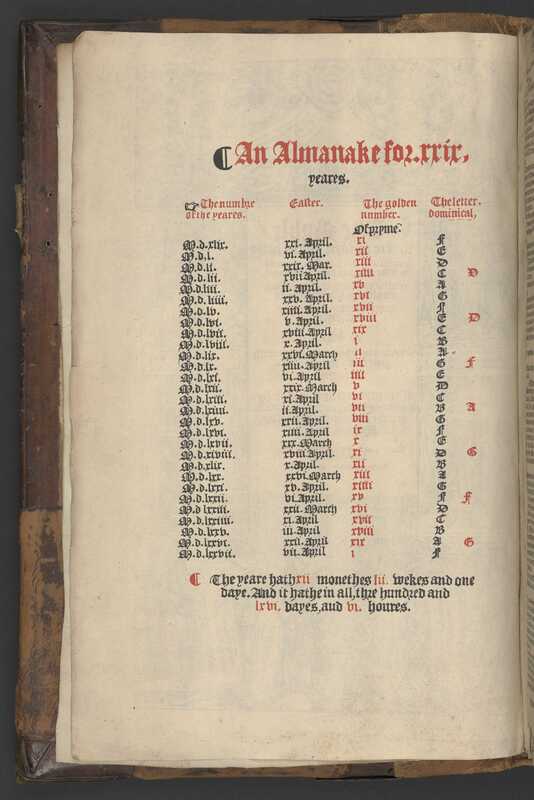 ¶ An Almanake for.xxix,
yeares.
☞ The numbre of the yeares. Easter. The golden number. The letter. dominical,
Of pryme.
M.d.xlix. xxi. April. xi F
M.d.l. vi. April. xii E
M.d.li. xxix. Mar. xiii D
M.d.lii. xvii April. xiiii C D
M.d.liii. ii. April. xv A
M.d.liiii. xxv. April. xvi G
M.d.lv. xiiii. April. xvii F
M.d.lvi. v. April. xviii E D
M.d.lvii. xviii April xix C
M.d.lviii. x. April. i B
M.d.lix. xxvi. March ii A
M.d.lx. xiiii. April iii G F
M.d.lxi. vi April iiii E
M.d.lxii. xxix March v D
M.d.lxiii. xi April vi C
M.d.lxiiii. ii. April. vii B A
M.d.lxv. xxii. April. viii G
M.d.lxvi. xiiii April ix F
M.d.lxvii. xxx. March x E
M.d.xlviii. xviii April. xi D G
M.d.xlix. x. April. xii B
M.d.lxx. xxvi March xiii A
M.d.lxxi. xv. April. xiiii G
M.d.lxxii. vi April. xv F F
M.d.lxxiii. xxii. March xvi D
M.d.lxxiiii. xi. April xvii C
M.d.lxxv. iii April xviii B
M.d.lxxvi. xxii. April xix A G
M.d.lxxvii. vii. April i F
¶ The yeare hath xii monethes lii. wekes and one
daye. And it hathe in all, thre hundred and
lxvi. dayes, aud vi. houres.